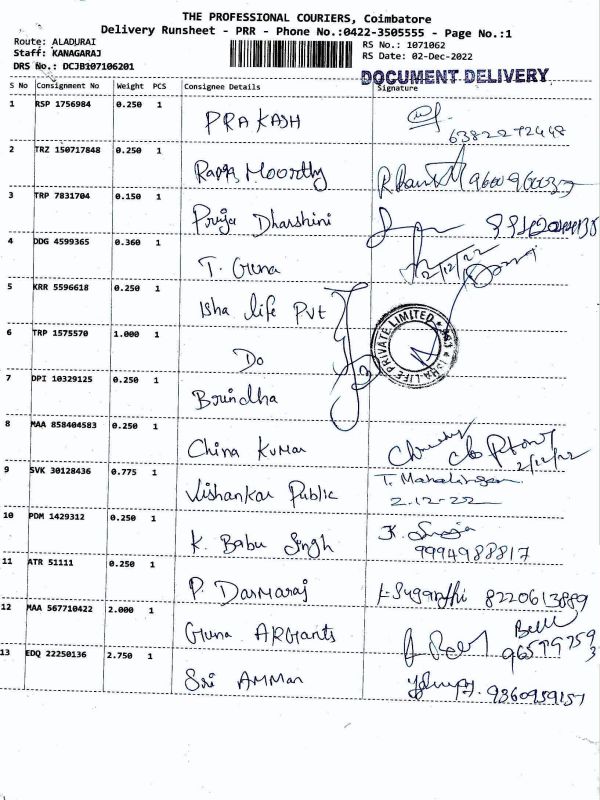 THE PROFESSIONAL COURIERS, Coimbatore
Delivery Runsheet - PRR - Phone No.:0422-3505555 - Page No.:1
Route: ALADURAI
RS No.: 1071062
Staff: KANAGARAJ
RS Date: 02-Dec-2022
DRS No.: DCJB107106201
DOCUMENT DELIVERY
S No Consignment No Weight PCS Consignee Details Signature
1 RSP 1756984 0.250 1 PRAKASH
6382272448
2 TRZ 150717848 0.250 1 Moorthy
3 TRP 7831704 0.150 1 Priya Dharshini
4 DDG 4599365 0.360 1 T. Guna 2/12/22
5 KRR 5596618 0.250 1 Isha life Pvt
ISHA LIFE PRIVATE LIMITED
6 TRP 1575570 1.000 1 Do
7 DPI 10329125 0.250 1 Brindha
8 MAA 858404583 0.250 1 China Kumar
2/12/22
9 SVK 30128436 0.775 1 Vishankar Public T. Mahalingam
2.12-22
10 PDM 1429312 0.250 1 K. Babu Singh
9994988817
11 ATR 51111 0.250 1 P. Darmaraj Suganthi 8220613889
12 MAA 567710422 2.000 1 Guna ARGiants
13 EDQ 22250136 2.750 1 Sri AMMan 9360959157